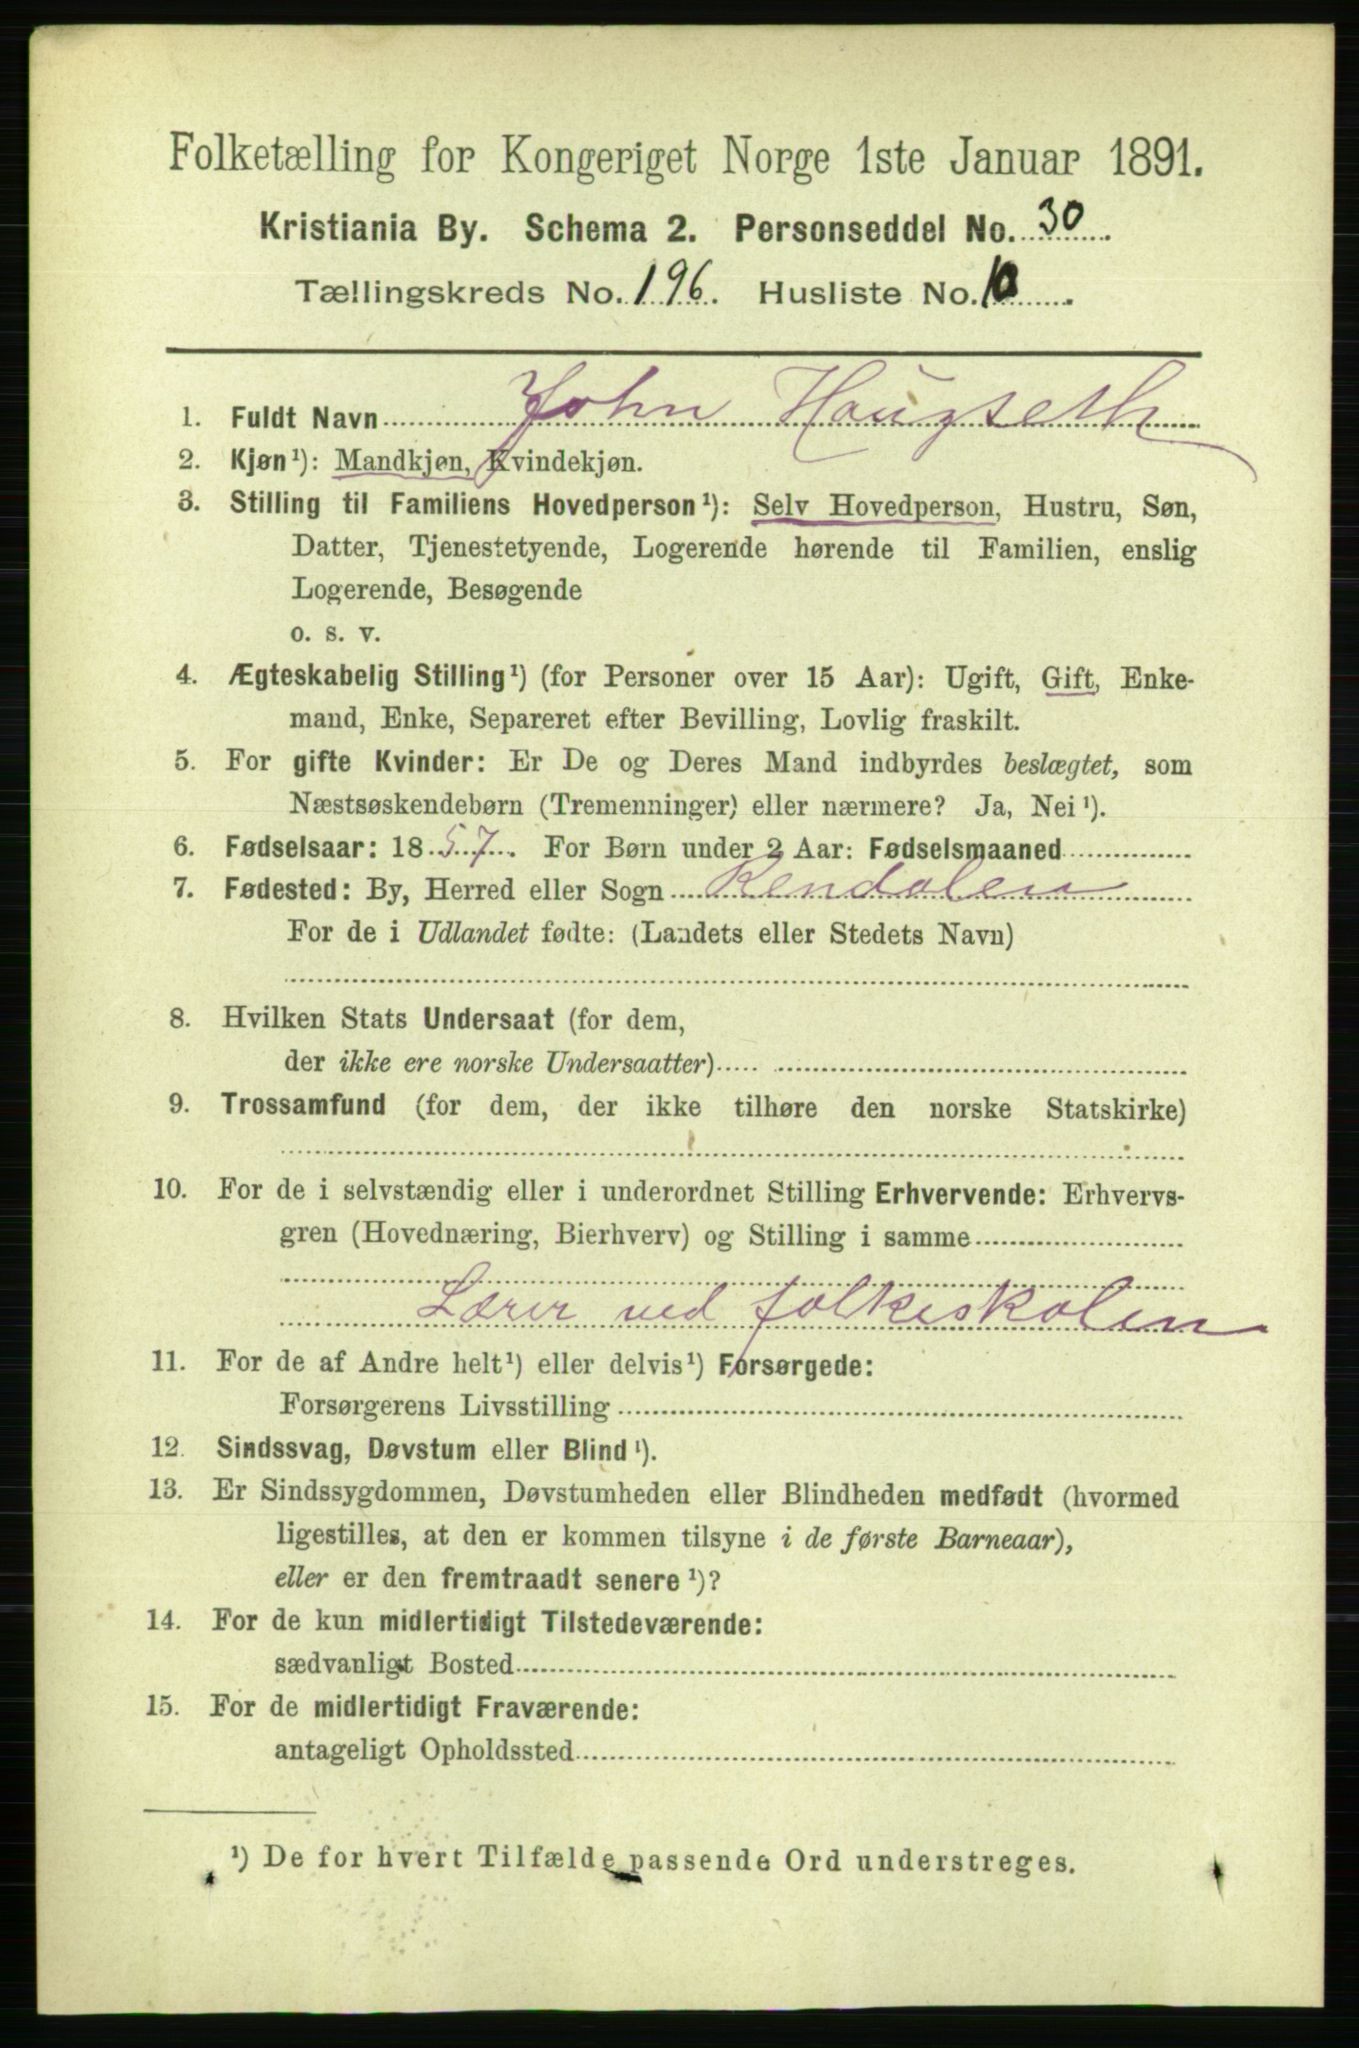 Folketælling for Kongeriget Norge 1ste Januar 1891.
Kristiania By. Schema 2. Personseddel No. 30
Tællingskreds No. 196. Husliste No. 10.
1. Fuldt Navn John Haugseth
2. Kjøn¹): Mandkjøn, Kvindekjøn.
3. Stilling til Familiens Hovedperson¹): Selv Hovedperson, Hustru, Søn,
Datter, Tjenestetyende, Logerende hørende til Familien, enslig
Logerende, Besøgende
o. s. v.
4. Ægteskabelig Stilling¹) (for Personer over 15 Aar): Ugift, Gift, Enke-
mand, Enke, Separeret efter Bevilling, Lovlig fraskilt.
5. For gifte Kvinder: Er De og Deres Mand indbyrdes beslægtet, som
Næstsøskendebørn (Tremenninger) eller nærmere? Ja, Nei¹).
6. Fødselsaar: 1857. For Børn under 2 Aar: Fødselsmaaned
7. Fødested: By, Herred eller Sogn Rendalen
For de i Udlandet fødte: (Landets eller Stedets Navn)
8. Hvilken Stats Undersaat (for dem,
der ikke ere norske Undersaatter)
9. Trossamfund (for dem, der ikke tilhøre den norske Statskirke)
10. For de i selvstændig eller i underordnet Stilling Erhvervende: Erhvervs-
gren (Hovednæring, Bierhverv) og Stilling i samme
Lærer ved folkeskolen
11. For de af Andre helt¹) eller delvis¹) Forsørgede:
Forsørgerens Livsstilling
12. Sindssvag, Døvstum eller Blind¹).
13. Er Sindssygdommen, Døvstumheden eller Blindheden medfødt (hvormed
ligestilles, at den er kommen tilsyne i de første Barneaar),
eller er den fremtraadt senere¹)?
14. For de kun midlertidigt Tilstedeværende:
sædvanligt Bosted
15. For de midlertidigt Fraværende:
antageligt Opholdssted
¹) De for hvert Tilfælde passende Ord understreges.